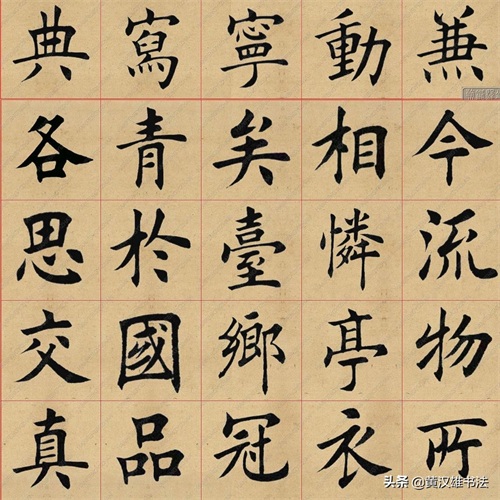 典寫寧動兼
各青矣相今
思於臺憐流
交國鄉亭物
真品冠衣所
头条 @黄汉雄书法